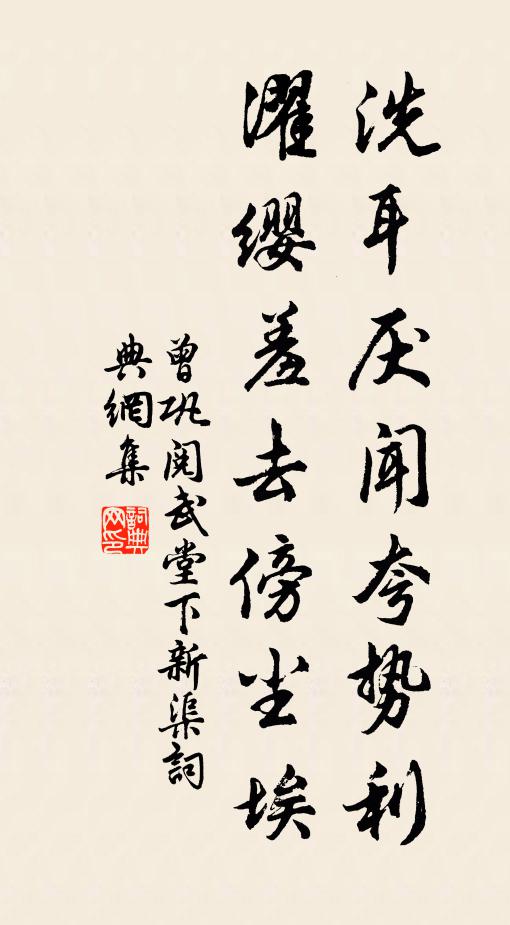 洗耳厌闻夸势利
濯缨羞去傍尘埃
曾巩阅武堂下新渠詞
典網集
詞典网印